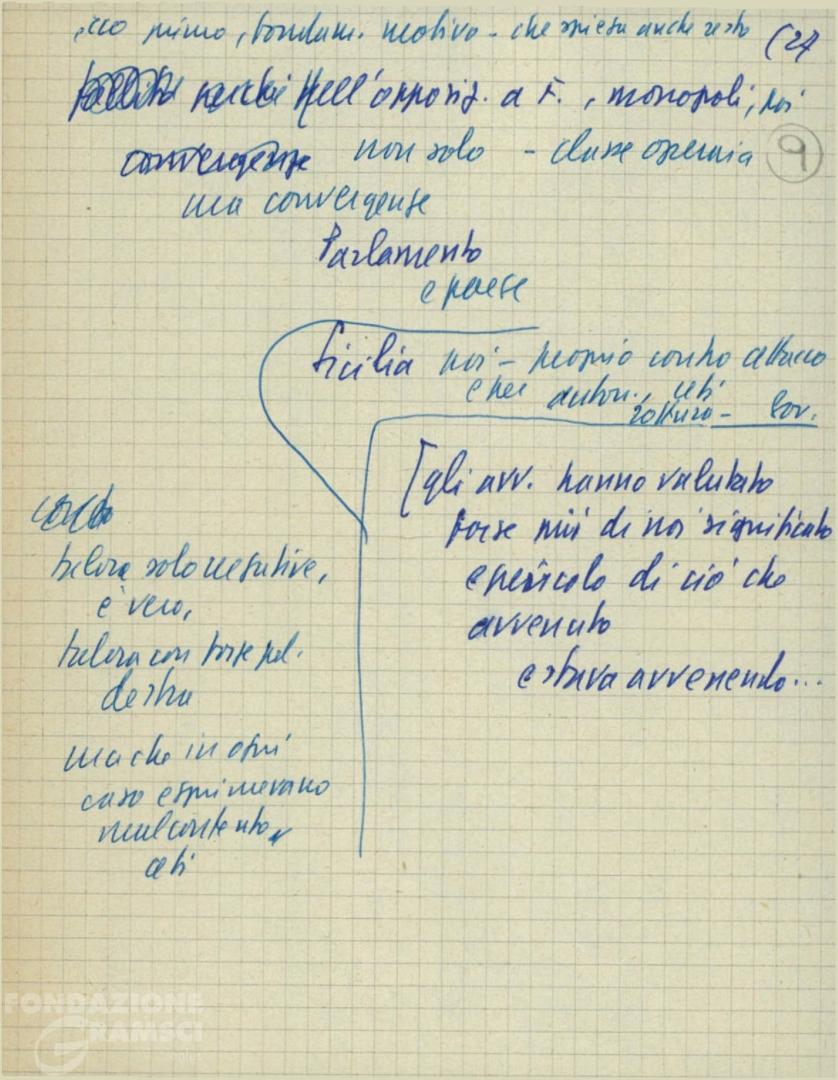 primo, fondam. motivo - che spiega anche resto (27
perché nell'opposiz. a F., monopoli, noi
9
convergenze non solo - classe operaia
ma convergenze
Parlamento
e paese
Sicilia noi - proprio contro attacco
e per auton., ceti
rottura - Gov.
[gli avv. hanno valutato
forse più di noi significato
e pericolo di ciò che
avvenuto
e stava avvenendo...
talora solo negative,
è vero,
talora con forze pol.
destra
ma che in ogni
caso esprimevano
malcontento
ceti
FONDAZIONE
GRAMSCI